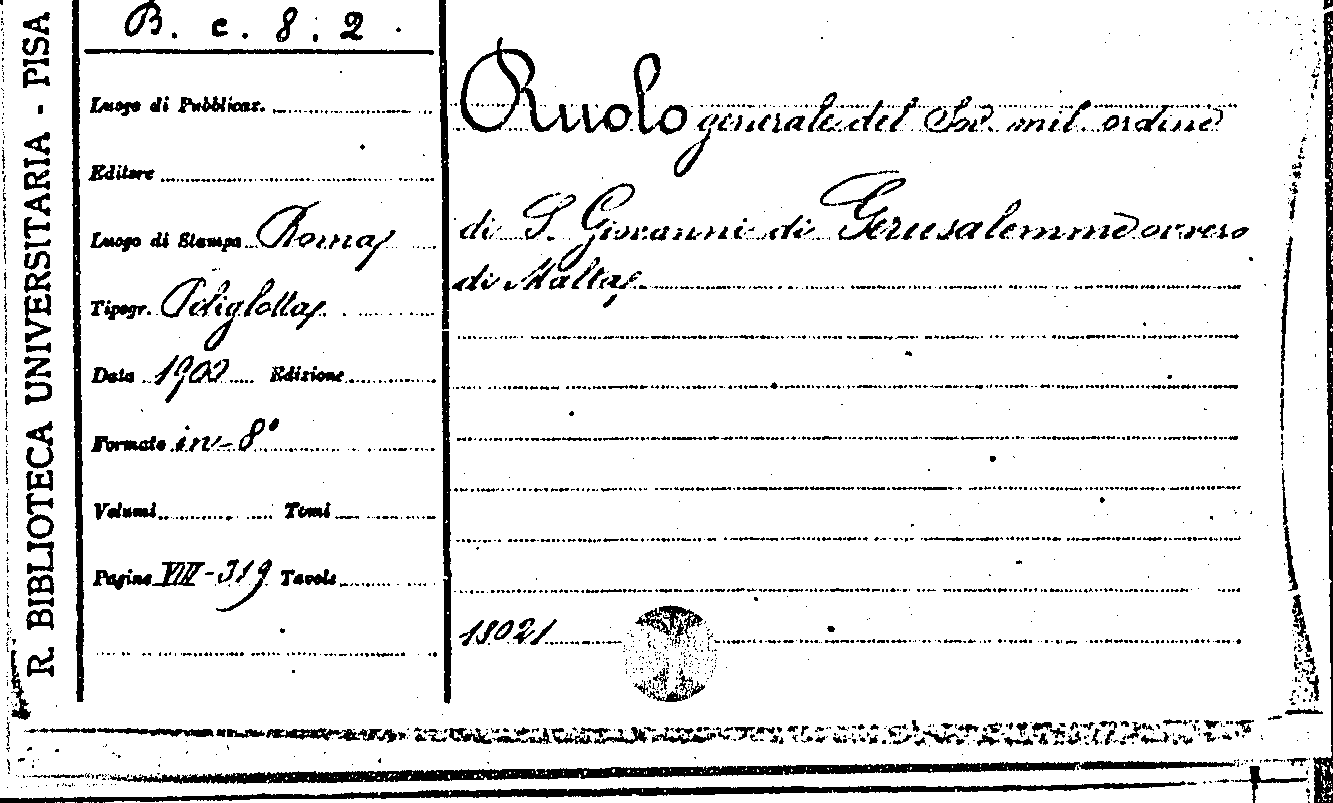 R. BIBLIOTECA UNIVERSITARIA - PISA
B. c. 8. 2.
Luogo di Pubblicaz.
Editore
Luogo di Stampa Roma
Tipogr. Poliglotta
Data 1902 Edizione
Formato in-8°
Volumi Tomi
Pagine VIII-319 Tavole
Ruolo generale del Sov. mil. ordine
di S. Giovanni di Gerusalemme ovvero
di Malta
13021